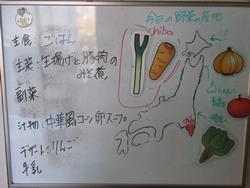 今日の野菜の産地
chiba
主食：ごはん
主菜：生揚げと豚肉の
みそ煮
副菜
汁物：中華風コーン卵スープ
デザート：りんご
牛乳
chiba